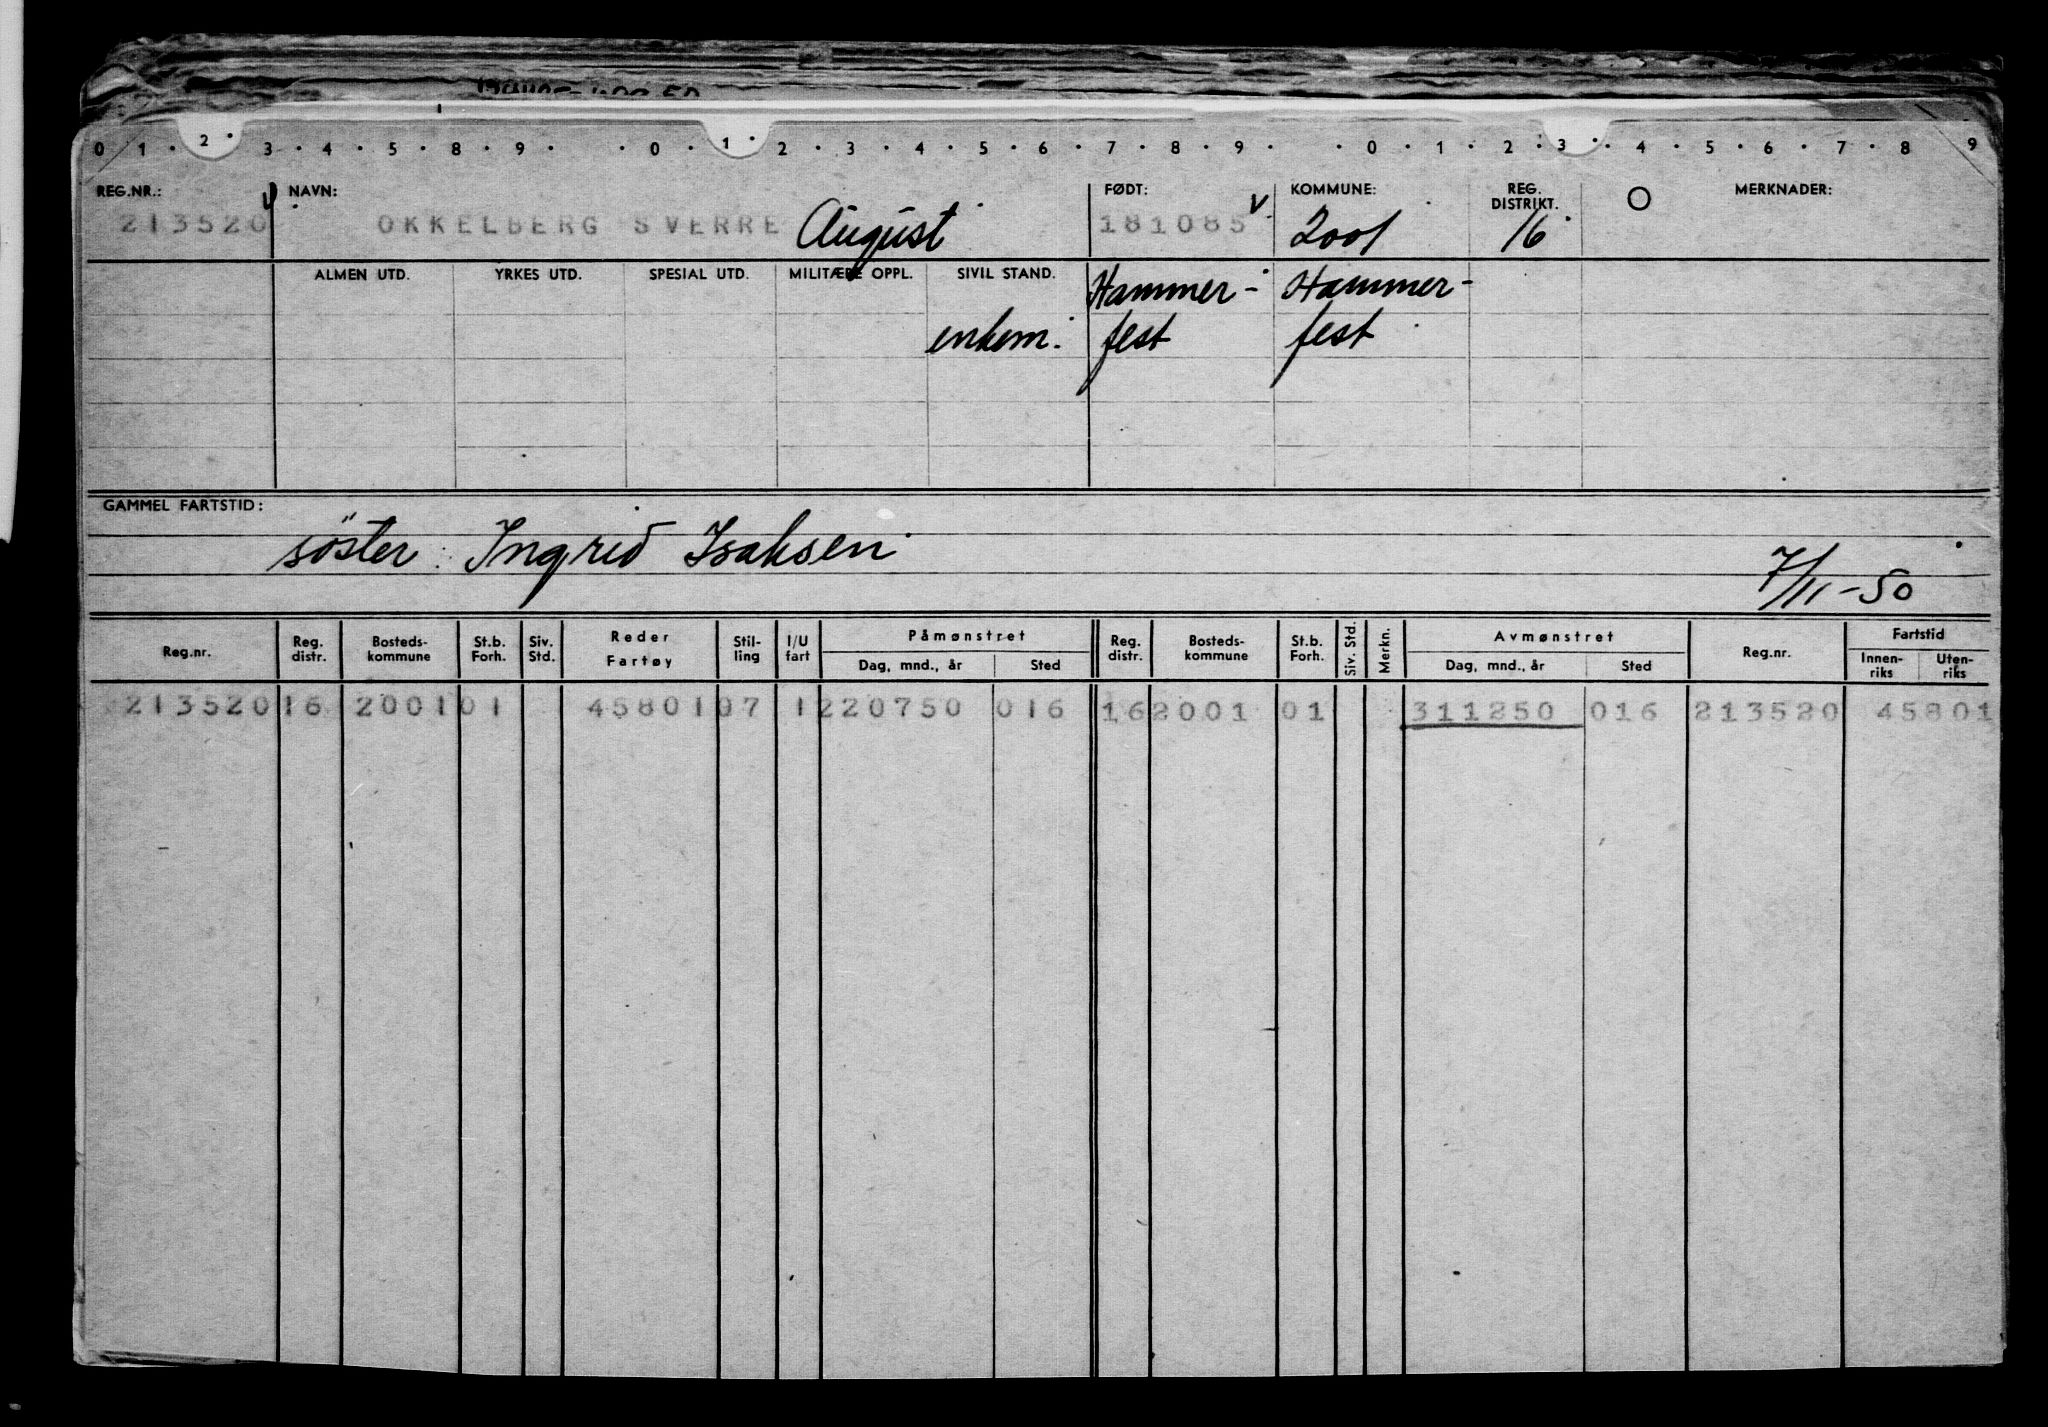 0 1 · 2 · 3 · 4 · 5 · 8 · 9 · · 0 · 1 · 2 · 3 · 4 · 5 · 6 · 7 · 8 · 9 · · 0 · 1 · 2 · 3 · · 4 · 5 · 6 · 7 · 8 9
REG.NR.: NAVN: FØDT: KOMMUNE: REG. DISTRIKT. O MERKNADER:
213520 v OKKELBERG SVERRE August 181085 v 2001 16
ALMEN UTD. YRKES UTD. SPESIAL UTD. MILITÆRE OPPL. SIVIL STAND. Hammer- Hammer-
enkem. fest fest
GAMMEL FARTSTID:
söster: Ingrid Isaksen
7/11-50
Reg.nr. Reg. distr. Bosteds- kommune St.b. Forh. Siv. Std. Reder Fartøy Stil- ling I/U fart Påmønstret Dag, mnd., år Sted Reg. distr. Bosteds- kommune St.b. Forh. Siv. Std. Merkn. Avmønstret Dag, mnd., år Sted Reg.nr. Fartstid Innen- riks Uten- riks
213520 16 2001 01 45801 07 1 220750 016 16 2001 01 311250 016 213520 45801